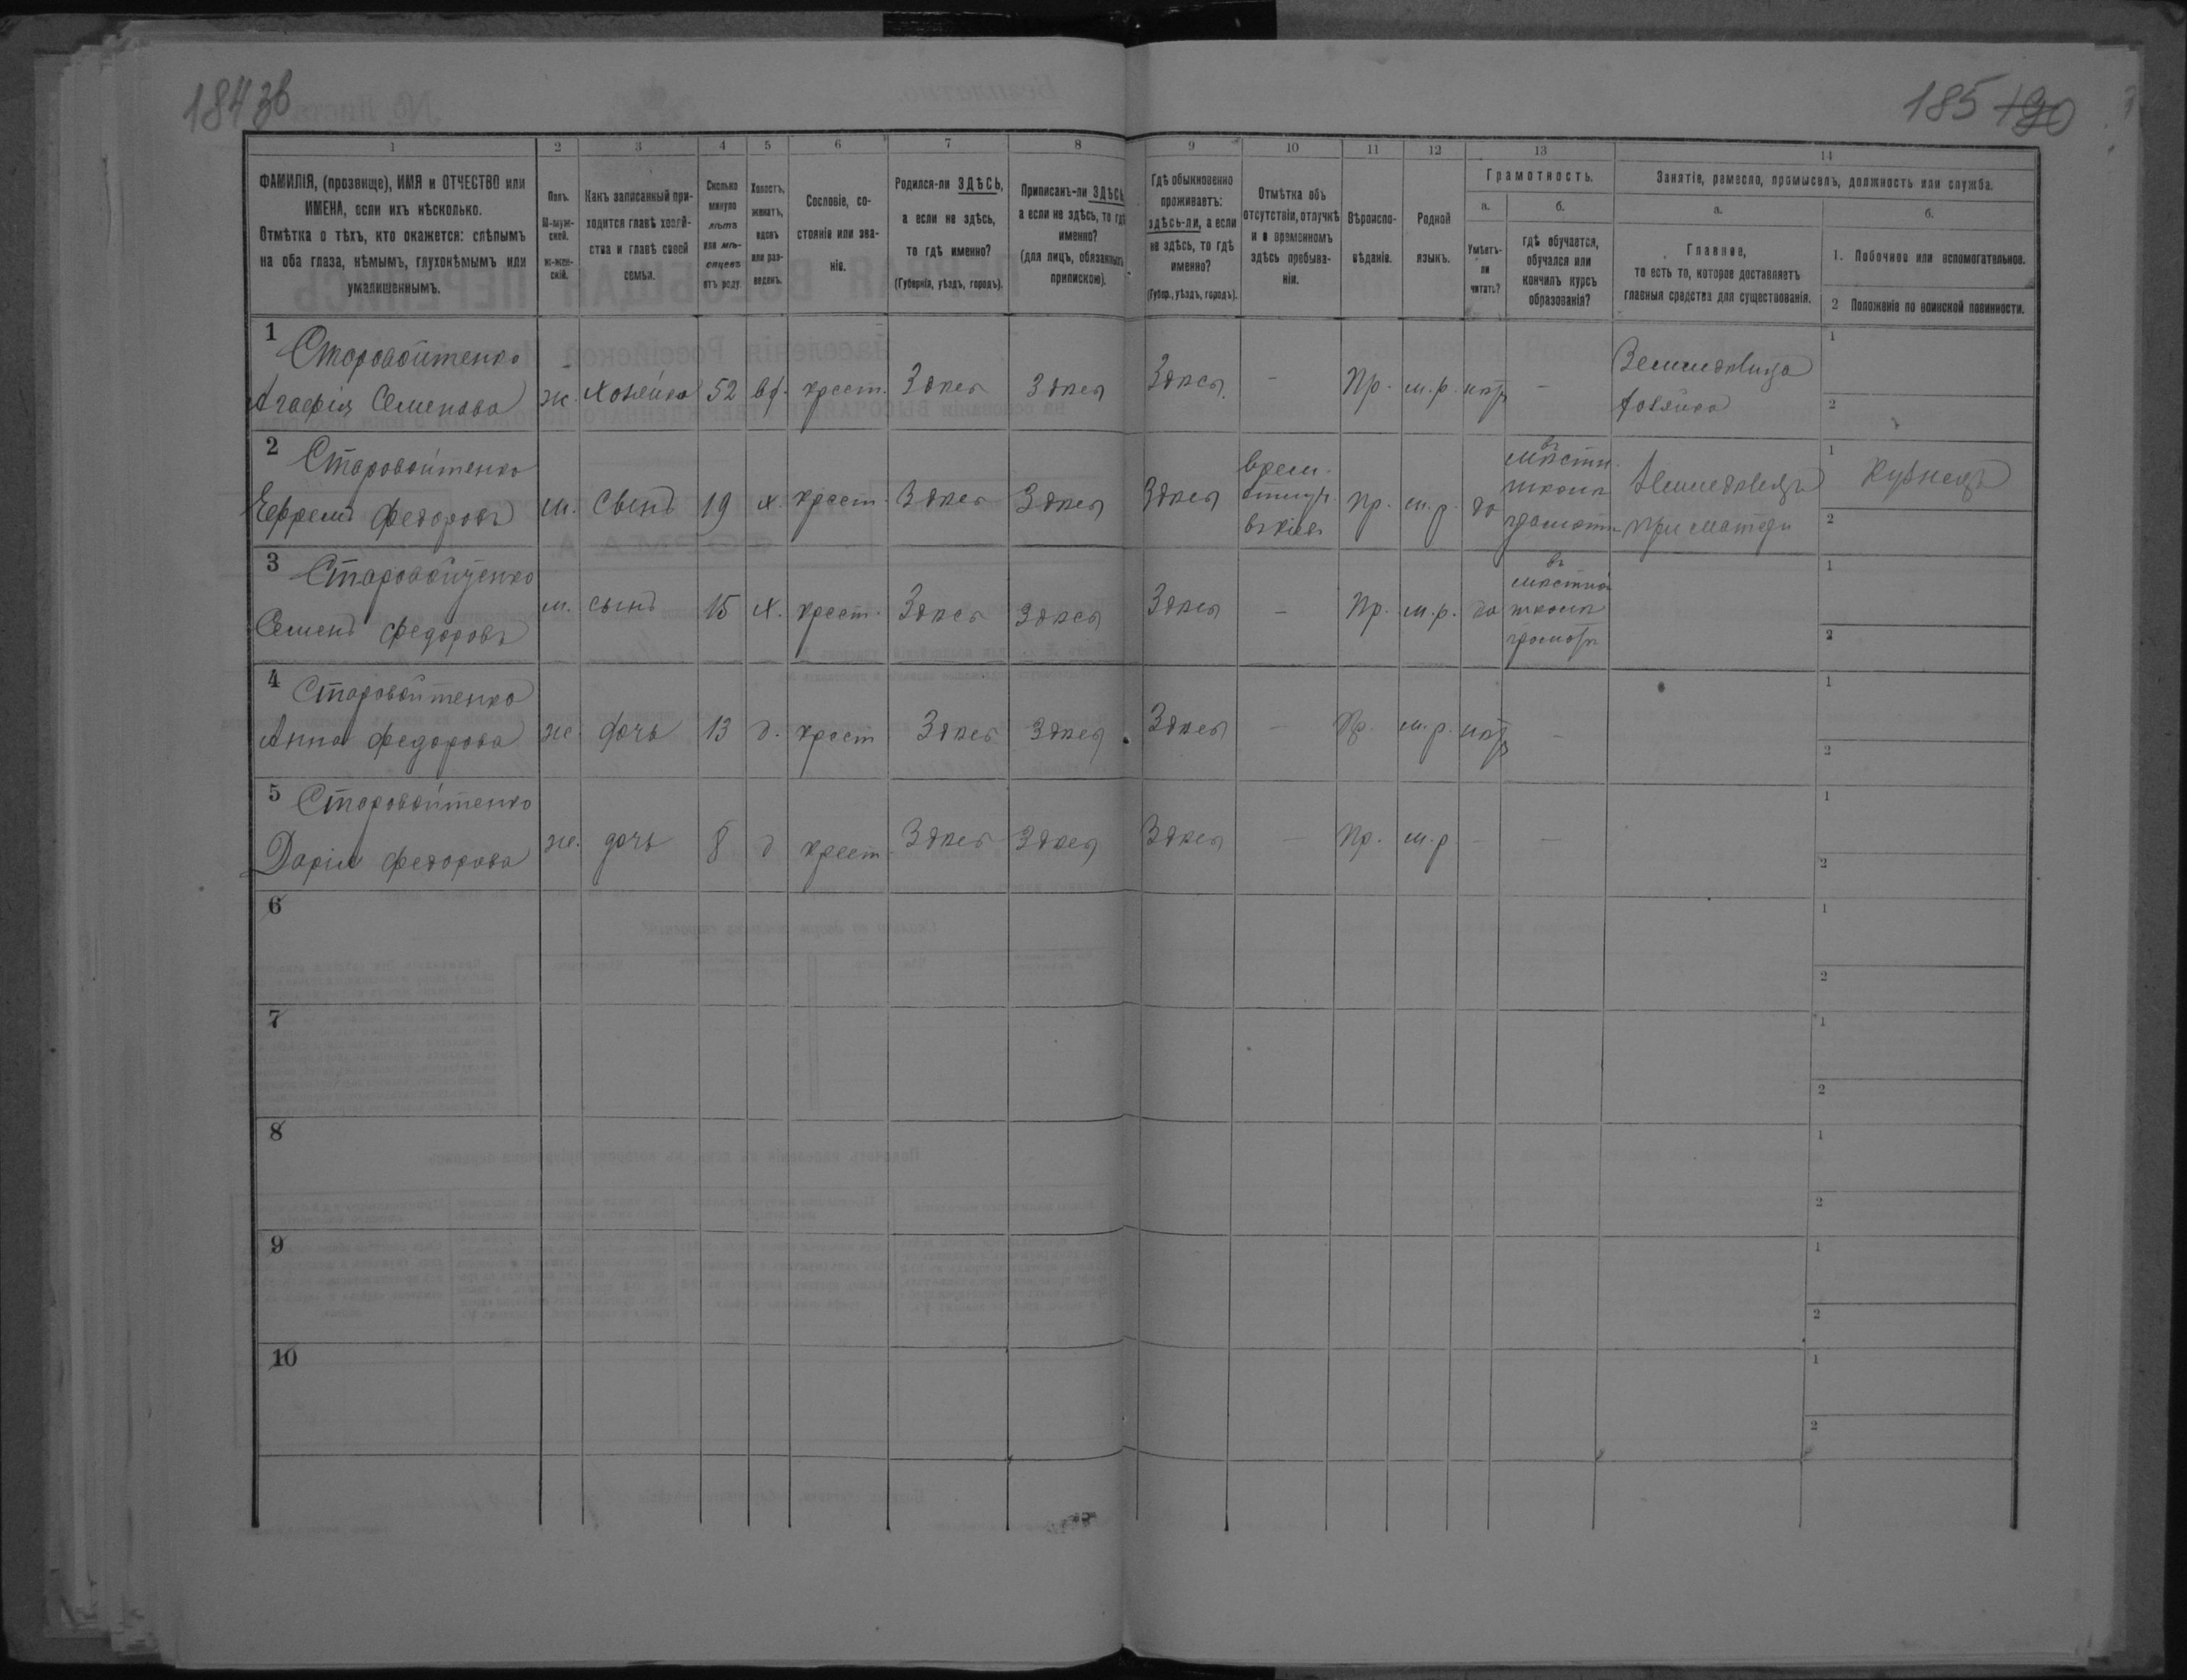 184 зв
185 190
1
2
3
4
5
6
7
8
9
10
11
12
13
14
ФАМИЛІЯ, (прозвище), ИМЯ и ОТЧЕСТВО или
ИМЕНА, если ихъ нѣсколько.
Отмѣтка о тѣхъ, кто окажется: слѣпымъ
на оба глаза, нѣмымъ, глухонѣмымъ или
умалишеннымъ.
Полъ.
М-муж-
ской.
ж-жен-
скій.
Какъ записанный при-
ходится главѣ хозяй-
ства и главѣ своей
семьи.
Сколько
минуло
лѣтъ
или мѣ-
сяцевъ
отъ роду
Холостъ,
женатъ,
вдовъ
или раз-
веденъ.
Сословіе, со-
стояніе или зва-
ніе.
Родился-ли ЗДѢСЬ,
а если не здѣсь,
то гдѣ именно?
(Губернія, уѣздъ, городъ).
Приписанъ-ли ЗДѢСЬ
а если не здѣсь, то гдѣ
именно?
(для лицъ, обязанныхъ
припискою).
Гдѣ обыкновенно
проживаетъ:
здѣсь-ли, а если
не здѣсь, то гдѣ
именно?
(Губер., уѣздъ, городъ).
Отмѣтка объ
отсутствіи, отлучкѣ
и о временномъ
здѣсь пребыва-
ніи.
Вѣроиспо-
вѣданіе.
Родной
языкъ.
Грамотность.
а.
Умѣетъ-
ли
читать?
б.
гдѣ обучается,
обучался или
кончилъ курсъ
образованія?
Занятіе, ремесло, промыселъ, должность или служба.
а.
Главное,
то есть то, которое доставляетъ
главныя средства для существованія.
б.
1. Побочное или вспомогательное.
2 Положеніе по воинской повинности.
1 Старовойтенко
Агафія Семенова ж. Хозяйка 52 вд. крест. Здѣсь Здѣсь Здѣсь - Пр. м.р. нѣтъ -
Земледѣлица
хозяйка
1
2
2 Старовойтенко
Ефремъ Федоровъ м. Сынъ 19 х. крест. Здѣсь Здѣсь Здѣсь
врем.
отлуч.
въ Кіевѣ
Пр. м.р. да
въ
мѣстн.
школѣ
грамоты
Земледѣлецъ
при матери
1 Кузнецъ
2
3 Старовойтенко
Семенъ Федоровъ м. сынъ 15 х. крест. Здѣсь Здѣсь Здѣсь - Пр. м.р. да
въ
мѣстной
школѣ
грамоты
1
2
4 Старовойтенко
Анна Федорова ж. дочь 13 д. крест Здѣсь Здѣсь Здѣсь - Пр. м.р. нѣтъ -
1
2
5 Старовойтенко
Дарія Федорова ж. дочь 8 д крест. Здѣсь Здѣсь Здѣсь - Пр. м.р - -
1
2
6
1
2
7
1
2
8
1
2
9
1
2
10
1
2